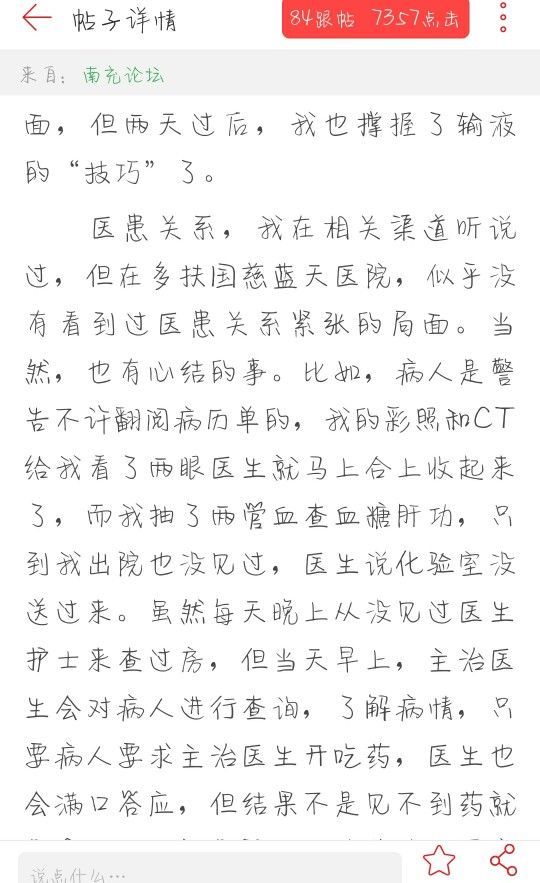 帖子详情
84跟帖 7357点击
来自：南充论坛
面，但两天过后，我也撑握了输液
的“技巧”了。
医患关系，我在相关渠道听说
过，但在多扶国慈蓝天医院，似乎没
有看到过医患关系紧张的局面。当
然，也有心结的事。比如，病人是警
告不许翻阅病历单的，我的彩照和CT
给我看了两眼医生就马上合上收起来
了，而我抽了两管血查血糖肝功，只
到我出院也没见过，医生说化验室没
送过来。虽然每天晚上从没见过医生
护士来查过房，但当天早上，主治医
生会对病人进行查询，了解病情，只
要病人要求主治医生开吃药，医生也
会满口答应，但结果不是见不到药就
说点什么…